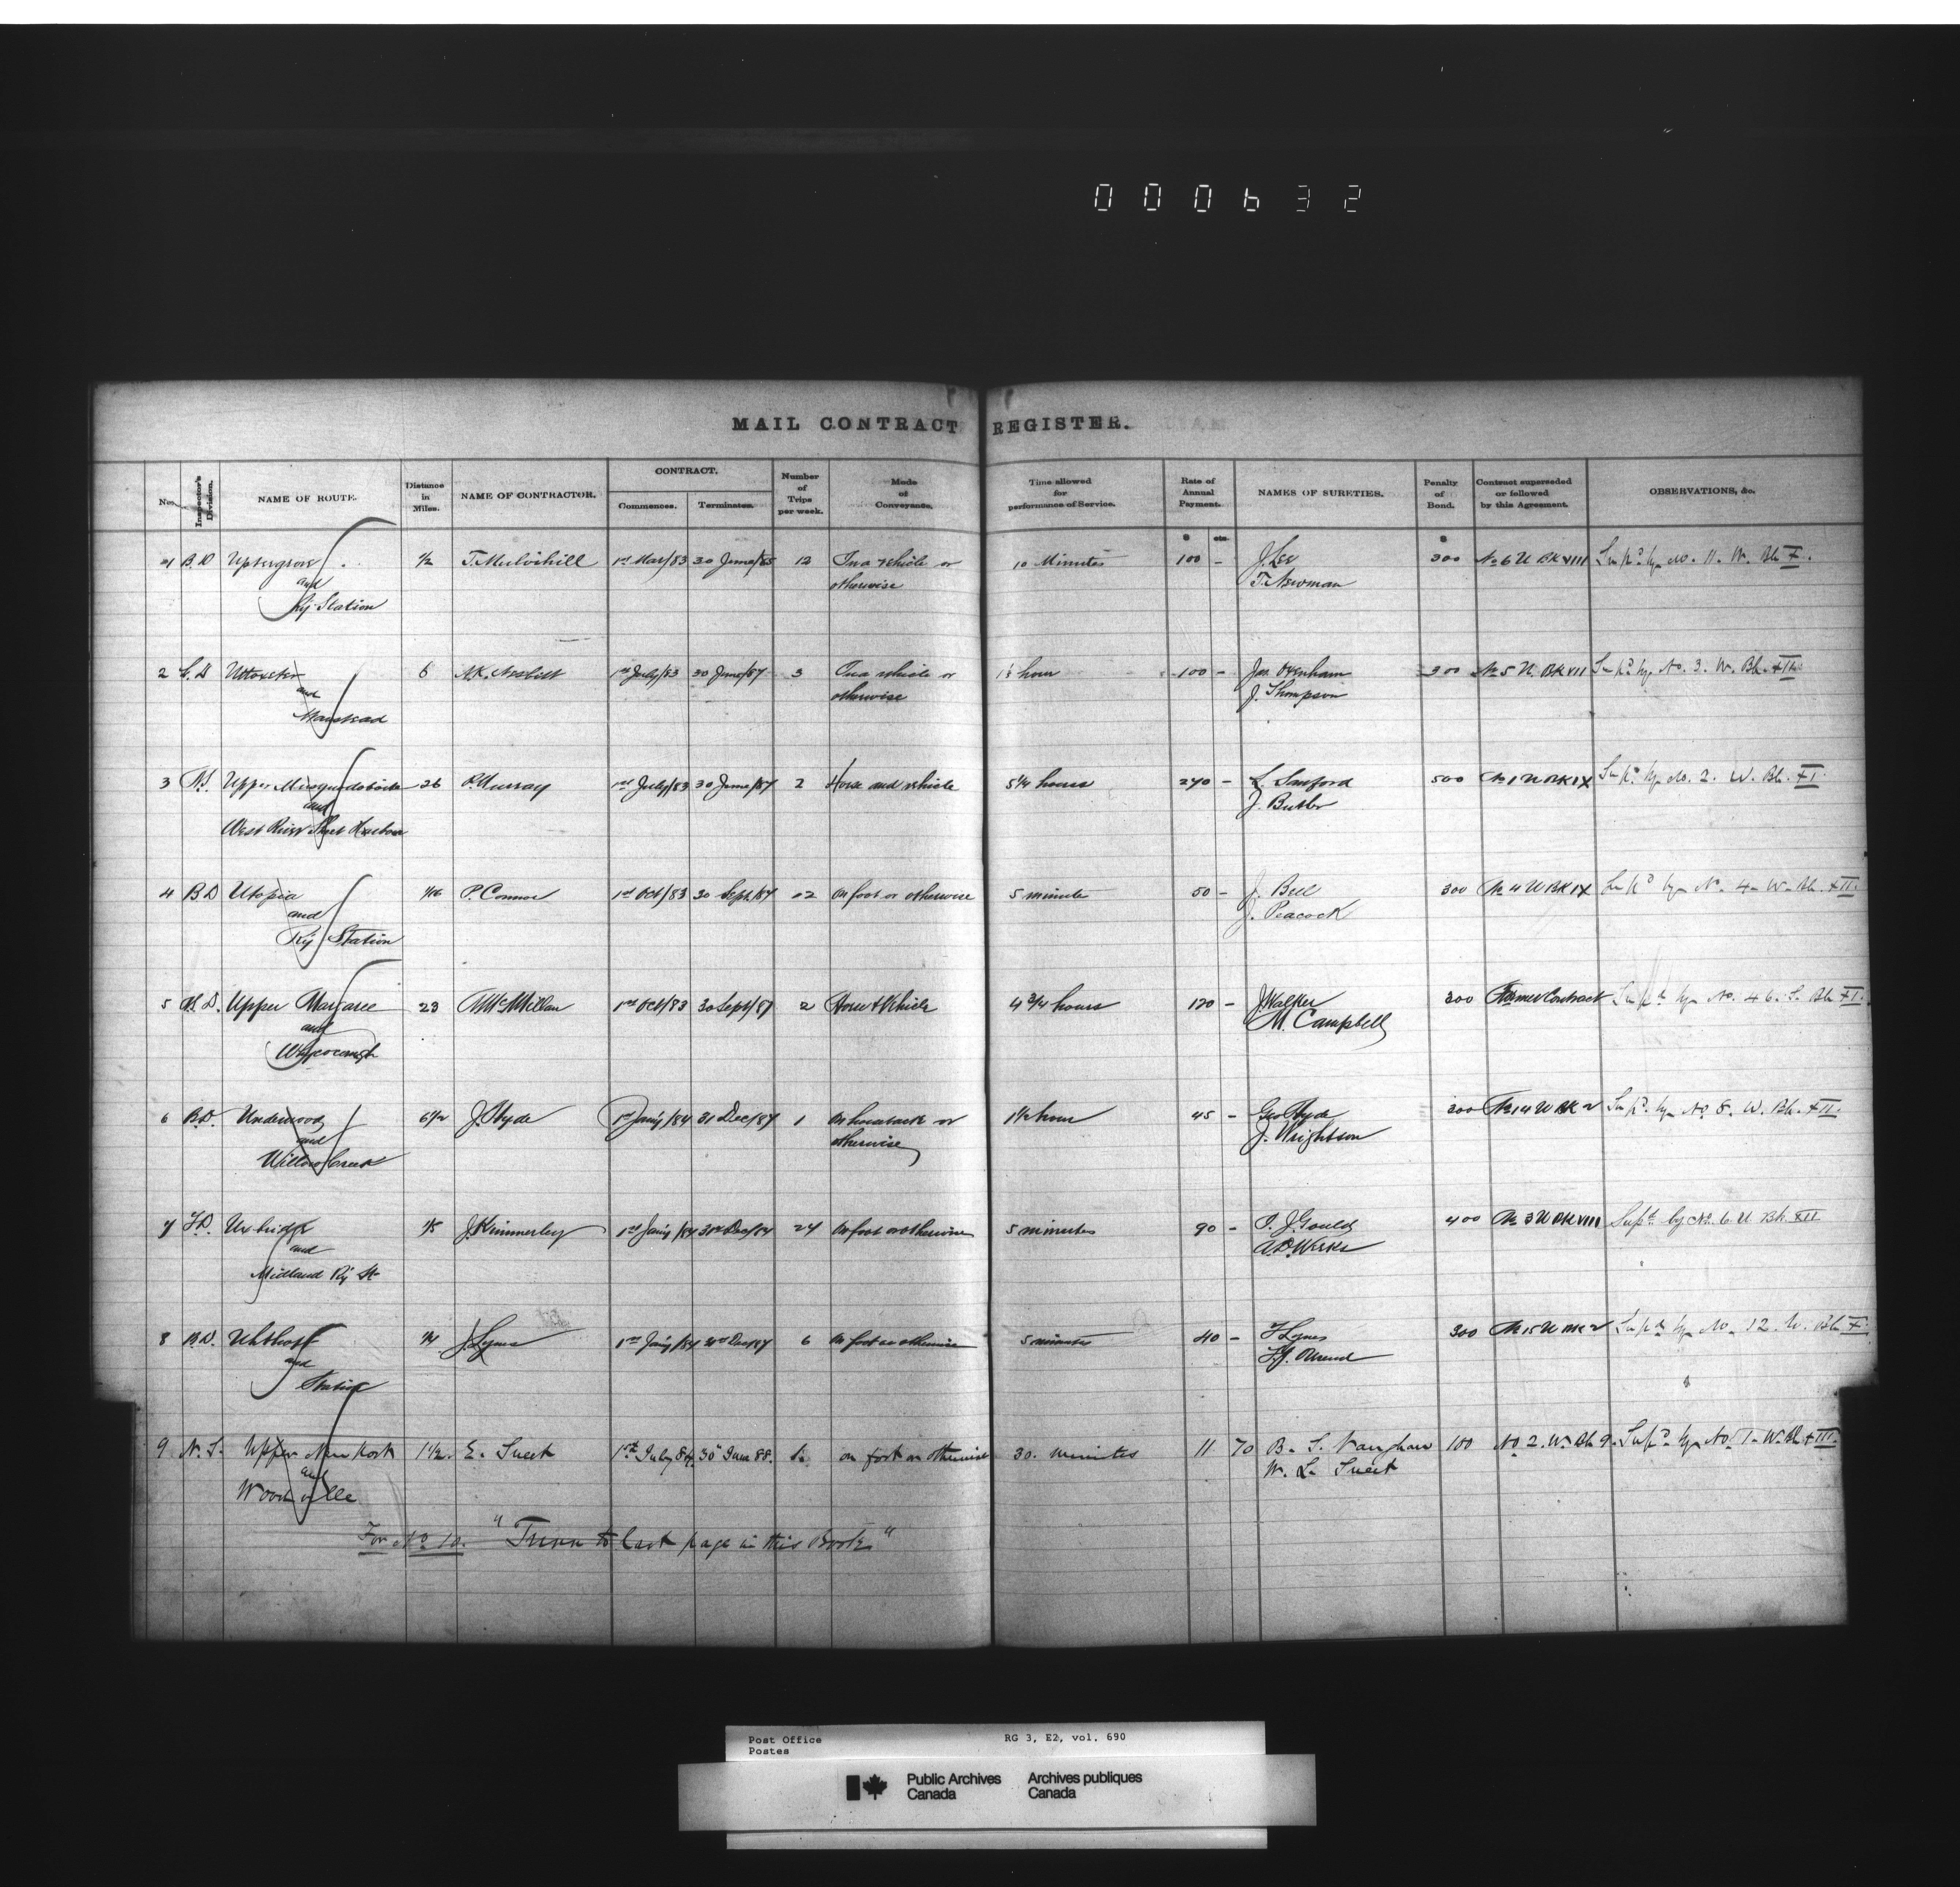 000632
MAIL CONTRACT REGISTER.
No. Inspector's Division. NAME OF ROUTE. Distance in Miles. NAME OF CONTRACTOR. CONTRACT. Commences. Terminates. Number of Trips per week. Mode of Conveyance. Time allowed for performance of Service. Rate of Annual Payment. NAMES OF SURETIES. Penalty of Bond. Contract superseded or followed by this Agreement. OBSERVATIONS, &c.
$ cts. $
1 B.D Uptergrove 1/2 T. Mulvihill 1st Mar/83 30 June/85 12 In a vehicle or 10 Minutes 100 - J. Lee 300 No 6 U BK VIII Sup'd by No. 11. W. Bk X.
and otherwise T. Newman
Ry Station
2 L.D Uttoxeter 6 N.K. Nesbitt 1st July/83 30 June/87 3 In a vehicle or hour 100 - Jas. Oxenham 300 No 5 U. BK VII Sup'd by No. 3. W. Bk. XII.
and otherwise J. Thompson
Wanstead
3 N.S Upper Musquodoboit 26 R. Murray 1st July/83 30 June/87 2 Horse and vehicle 5 1/4 hours 240 - L. Sanford 500 No 1 U BK IX Sup'd by No. 2. W. Bk. XI.
and J. Butler
West River Sheet Harbour
4 B D Utopia 1/16 P. Connor 1st Oct/83 30 Sept/87 12 On foot or otherwise 5 minute 50 - J. Bell 300 No 4 U BK IX Sup'd by No. 4. W. Bk. XII.
and J. Peacock
Ry Station
5 Upper Margaree 23 McMillan 1st Oct/83 30 Sept/87 2 Horse & Vehicle 4 3/4 hours 120 - J. Walker 300 Former Contract Sup'd by No. 46. S. Bk XI.
and M. Campbell
Whycocomagh
6 B.D. Underwood 6 1/2 J. Hyde 1st Jan'y/84 31 Dec/87 1 On horseback or 1 1/2 hour 45 - Geo Hyde 200 No 14 U BK 2 Sup'd by No 8. W. Bk. XII.
and otherwise J. Wrightson
Willow Creek
7 T.D. Uxbridge 1/8 J. Kimmerley 1st Jan'y/84 31st Dec/84 24 On foot or otherwise 5 minutes 90 - J. Gould 400 No 3 U BK VIII Sup'd by No. 6 U Bk. XII
and
Midland Ry St
8 B.D. Uhthoff 1/4 J. Lynes 1st Jan'y/84 31st Dec/87 6 On foot or otherwise 5 minutes 40 - Lynes 300 No 15 U BK 2 Sup'd by No. 12. W. Bk X.
and
Station
9 N.S. Upper Newport 1 1/2. E. Sweet 1st July 84. 30th June 88. on foot or otherwise 30. minutes 11 70 B. S. Vaughan 100 No 2. W. Bk 9. Sup'd by No 1. W. Bk XIII.
and W. L. Sweet
Woodville
For No 10. "Turn to last page in this Book"
Post Office RG 3, E2, vol. 690
Postes
Public Archives Archives publiques
Canada Canada